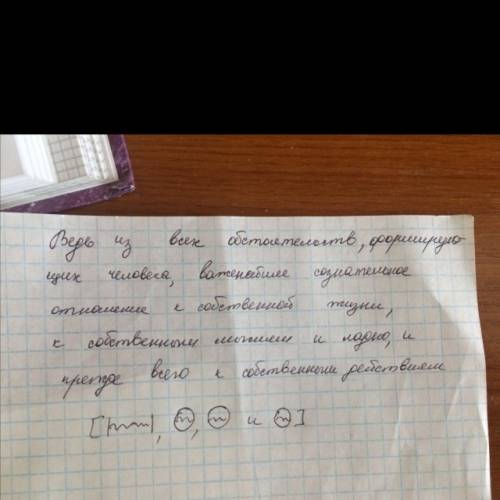 Ведь из всех обстоятельств, формирую-
щих человека, важнейшее сознательное
отношение к собственной жизни,
к собственным мыслям и, и
прежде всего к собственным действиям
[ , , и ]